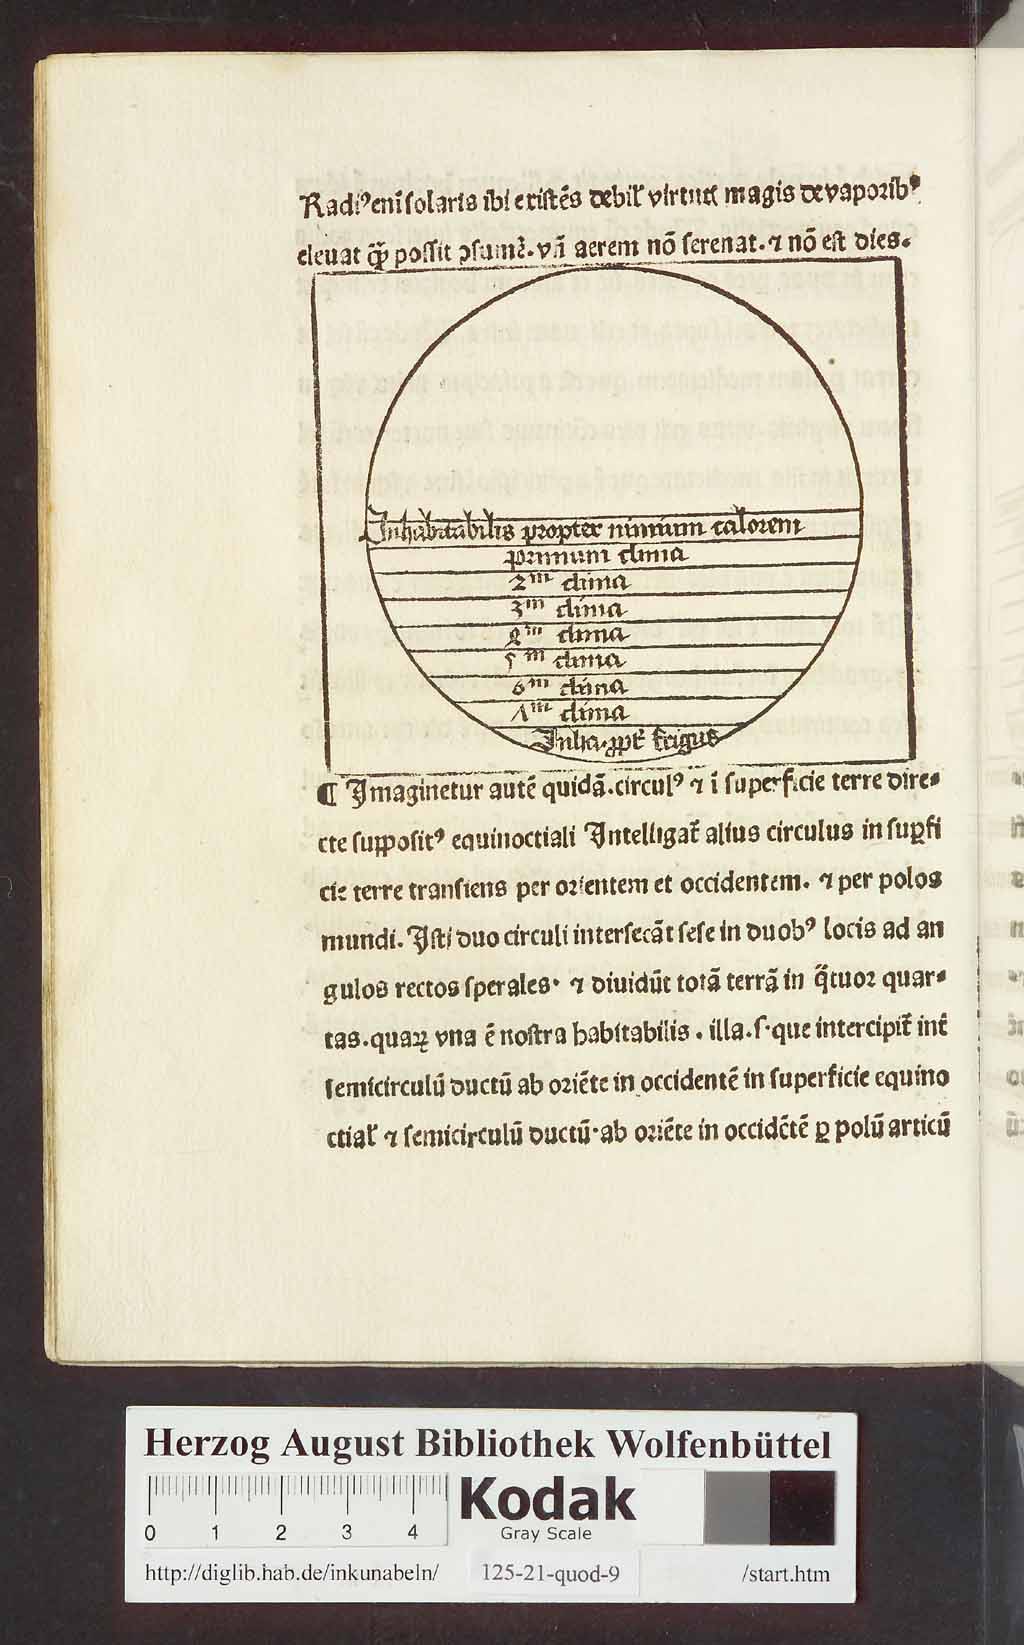 Radiꝰ eni solaris ibi existēs debil̛ virtutꝭ magis de vaporibꝰ
eleuat q̄ȝ possit ↄsumē. vñ aerem nō serenat. ⁊ nō est dies.
Inhabitabilis propter nimium calorem
primum clima
2m clima
3m clima
4m clima
5m clima
6m clima
7m clima
Inha. ppt̄ frigus
¶ Imaginetur autē quidā. circulꝰ ⁊ ī superficie terre dire-
cte supposit̛ꝰ equinoctiali Intelligat̄ alius circulus in suꝑfi
cie terre transiens per orientem et occidentem. ⁊ per polos
mundi. Isti duo circuli intersecāt sese in duobꝰ locis ad an
gulos rectos sperales. ⁊ diuidūt totā terrā in q̄tuor quar-
tas. quaꝝ vna ē nostra habitabilis. illa. s. que intercipit̄ int̄
semicirculū ductū ab oriēte in occidentē in superficie equino
ctial̛ ⁊ semicirculū ductū. ab oriēte in occidētē ꝑ polū articū
Herzog August Bibliothek Wolfenbüttel
0 1 2 3 4
Kodak
Gray Scale
http://diglib.hab.de/inkunabeln/ 125-21-quod-9 /start.htm